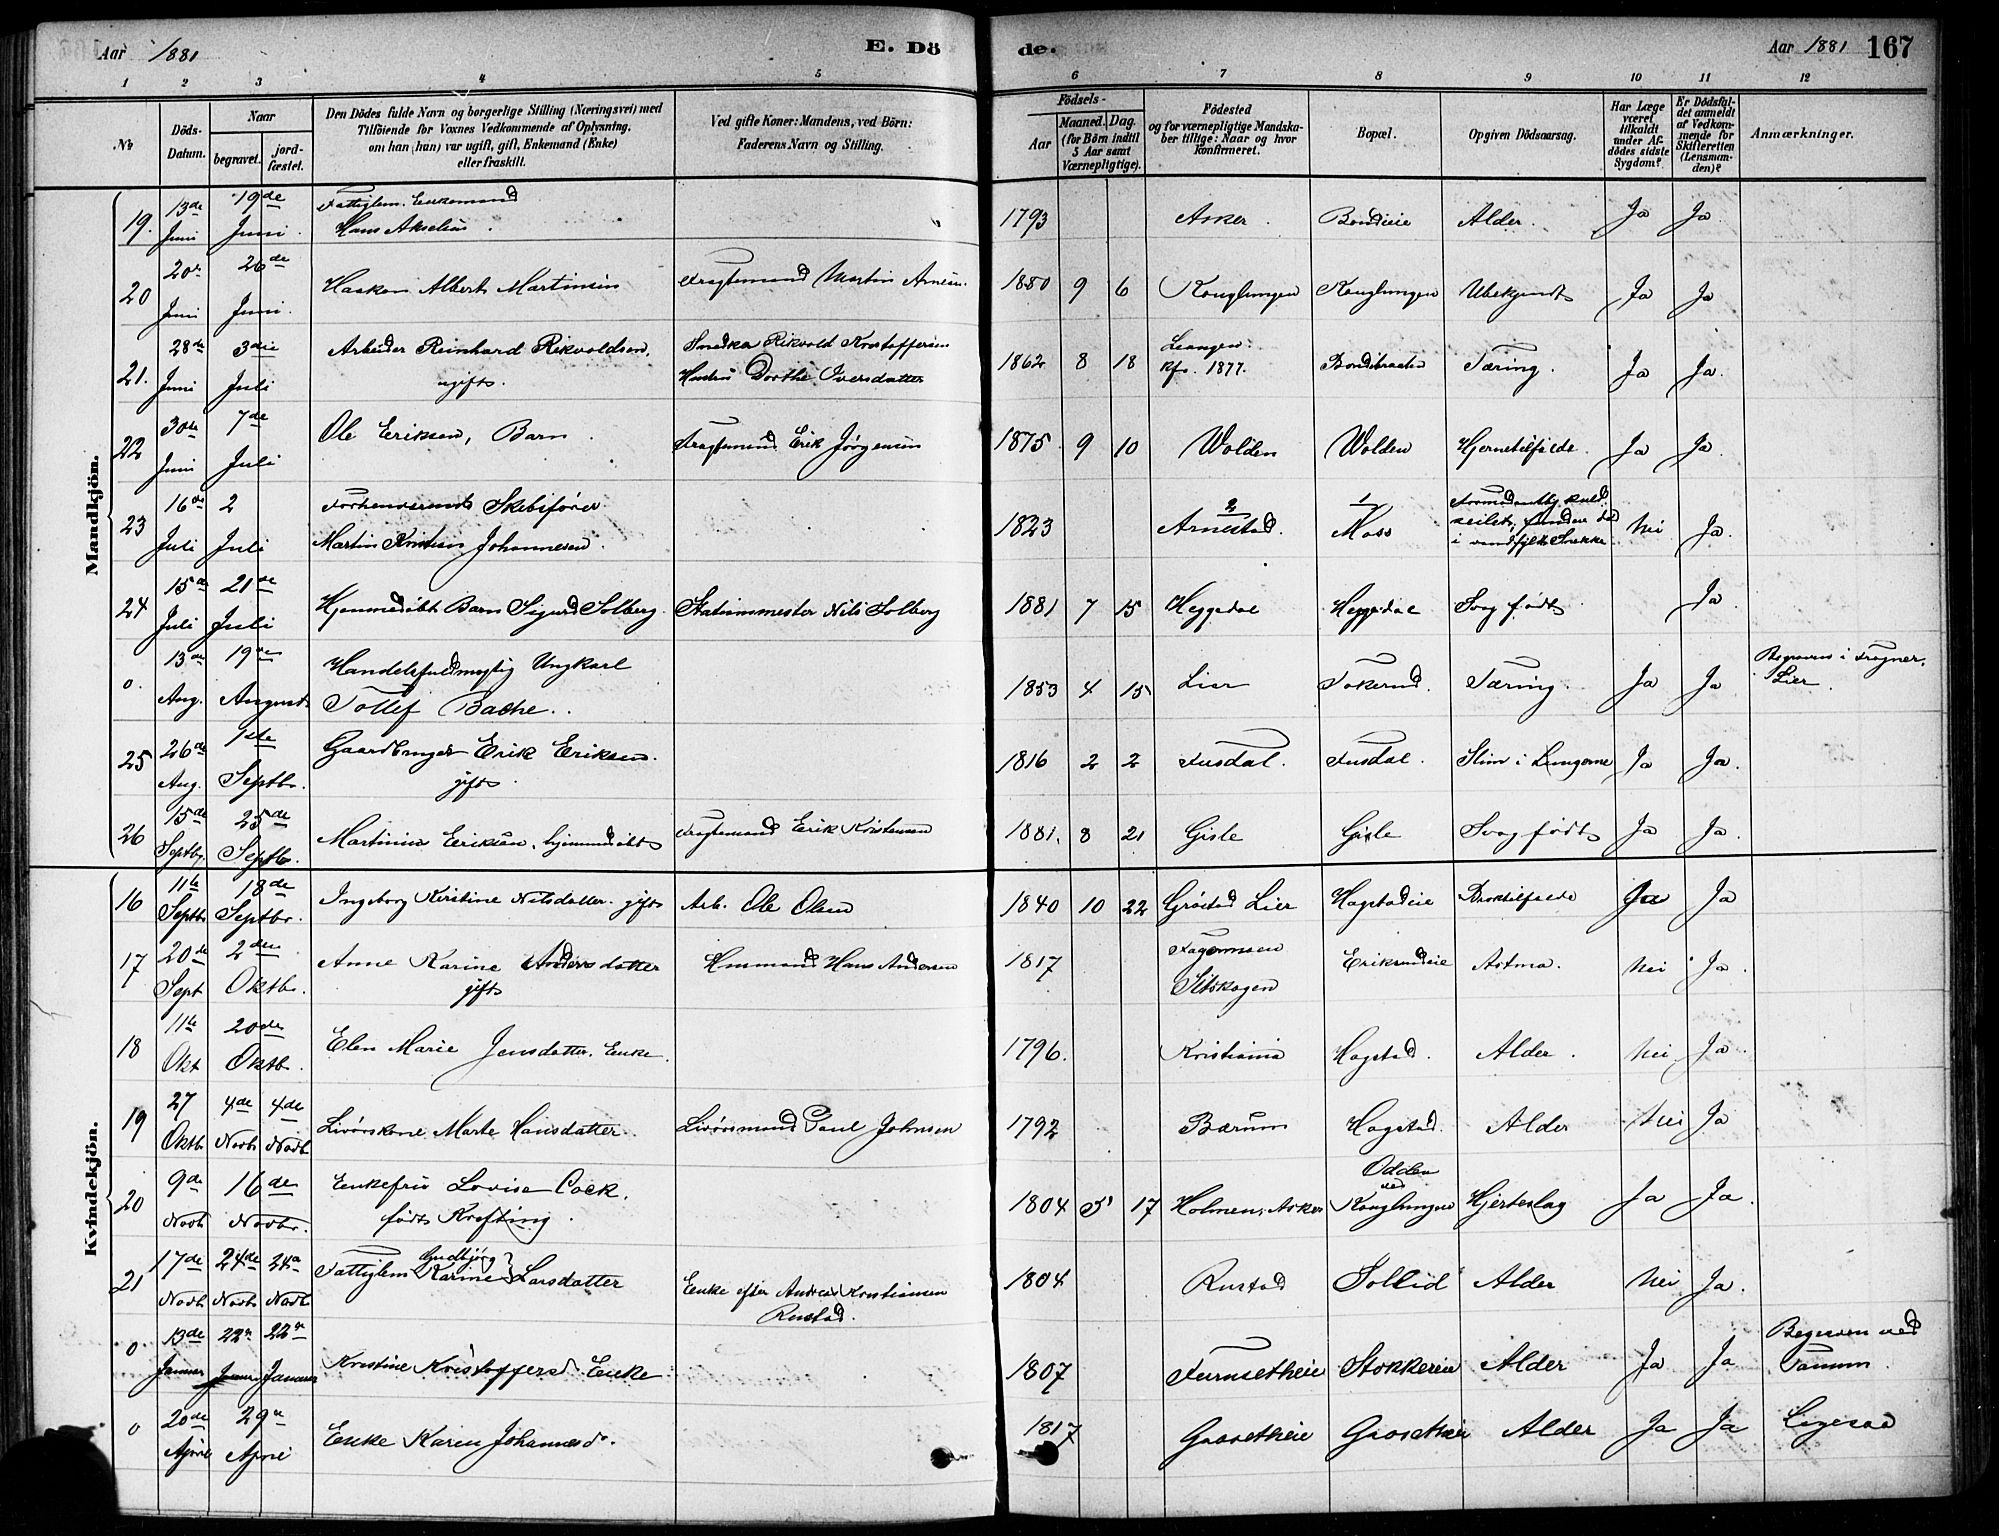 Aar 1881 E. Dö
1 2 3 4 5
№ Döds-Datum. Naar begravet. jordfæstet. Den Dödes fulde Navn og borgerlige Stilling (Næringsvei) med Tilföiende for Voxnes Vedkommende af Oplysning, om han (hun) var ugift, gift, Enkemand (Enke) eller fraskilt. Ved gifte Koner: Mandens, ved Börn: Faderens Navn og Stilling.
de. Aar 1881 167
6 7 8 9 10 11 12
Födsels- Aar Maaned. Dag. (for Börn indtil 5 Aar samt Værnepligtige). Födested og for værnepligtige Mandskaber tillige: Naar og hvor konfirmeret. Bopæl. Opgiven Dödsaarsag. Har Læge været tilkaldt under Afdödes sidste Sygdom? Er Dödsfaldet anmeldt af Vedkommende for Skifteretten (Lensmanden)? Anmærkninger.
Mandkjön.
19. 13de Juni 19de Juni. Fattiglem. Enkemand Hans Akselsen. 1793 Asker. Bondieie Alder. Ja Ja
20 20de Juni 26de Juni. Haakon Albert Martinsen Fragtemand Martin Arnesen. 1880 9 6 Konglungen Konglungen Ubekjendt Ja Ja
21. 28de Juni 3die Juli Arbeider Reinhard Rikvoldsen, ugift. Snedker Rikvold Kristoffersen Hustru Dorthe Iversdatter 1862 8 18 Leangen. Kfr. 1877. Bondibraaten Tæring. Ja Ja.
22 30de Juni 7de Juli Ole Eriksen, Barn. Fragtemand Erik Jørgensen 1875 9 10 Wolden Wolden Hjernetilfælde. Ja Ja.
23 16de Juli 2 Juli Forhenværende Skibsfører Martin Kristian Johannesen. 1823 Arnestad, Moss Formodentlig kuldseilet, funden død i vandfyldt Snekke. Nei Ja.
24 15de Juli 21de Juli Hjemmedøbt Barn Sigurd Solberg. Stationsmester Nils Solberg 1881 7 15 Heggedal Heggedal Svag født Ja.
0. 13de Aug. 19de August Handelsfuldmægtig Ungkarl Tollef Bache. 1853 4 15 Lier Tokerud. Tæring. Ja Ja Begraven i Frogner, Lier.
25 26de Aug. 1ste Septbr. Gaardbruger Erik Eriksen. gift. 1816 2 2 Fusdal. Fusdal. Slim i Lungerne Ja Ja.
26 15de Septbr. 25de Septbr. Martinius Eriksen, hjemmedøbt Fragtemand Erik Kristensen 1881. 8 21 Gisle Gisle Svag født Ja Ja.
Kvindekjön.
16 11te Septbr. 18de Septbr. Ingeborg Kirstine Nilsdatter. gift Arb. Ole Olsen 1840 10 22 Grøstad Lier Hagstadeie Broktilfælde Ja Ja
17 20de Sept 2den Oktbr. Anne Karine Andersdatter gift Husmand Hans Andersen 1817 Eriksrudeie Astma. Nei Ja.
18 11te Okt 20de Oktb. Elen Marie Jensdatter. Enke. 1796. Kristiania Hagstad. Alder. Nei Ja.
19 27 Oktb 4de Novb 4de Novb Livørskone Marte Hansdatter. Livørsmand Paul Johnsen 1792 Bærum Hagstad. Alder Nei Ja
20 9de Novb 16de Novbr. Enkefru Lovise Cock. født Krefting. 1804 5 17 Holmen, Asker Odden ved Konglungen Hjerteslag Ja Ja.
21 17de Novb 24de Novb 24de Novb Fattiglem Gudbjørg Karine Larsdatter Enke efter Andreas Kristiansen Rustad. 1804 Rustad Sollid Alder Nei Ja.
0 13de Januar 22de Januar 22de Januar Kristine Kristoffersd Enke 1807 Furusetheie Stokkereie Alder Ja Ja Begraven ved Tanum.
0 20de April 29de April Enke Karen Johannesd. 1817 Alder Ja Ja Ligesaa